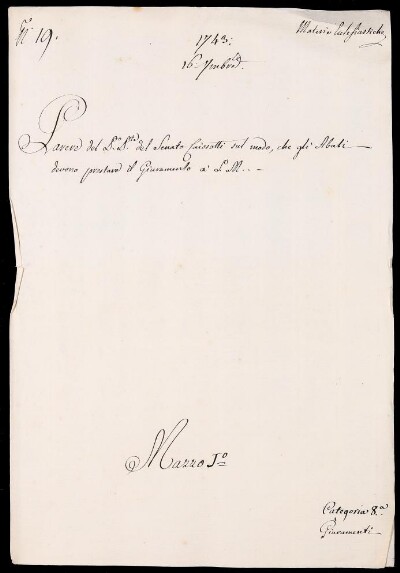 N.º 19.
Materie Ecclesiastiche,
1743:
16. 7mbre
Parere del P.º P.te del Senato Caissotti sul modo, che gli Abati
devono prestare il Giuramento a S. M. . -
Mazzo I.º
Categoria 8.a
Giuramenti